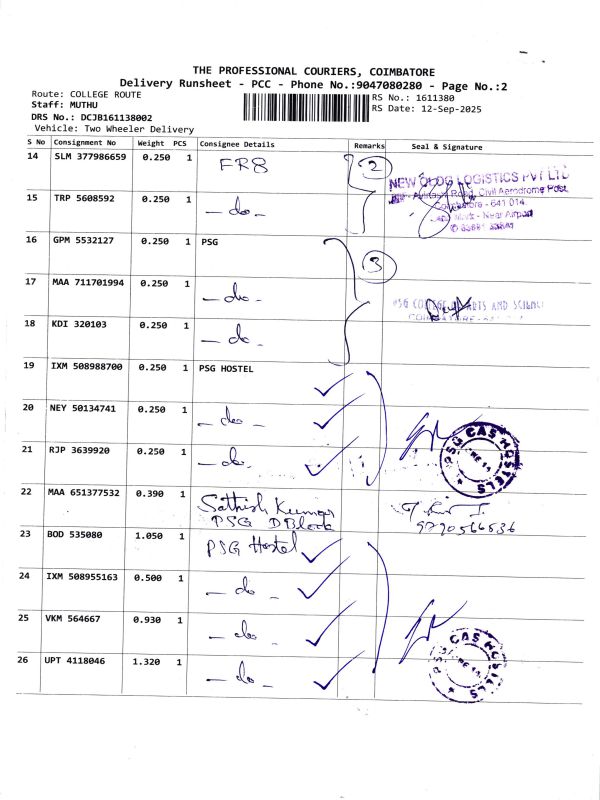 THE PROFESSIONAL COURIERS, COIMBATORE
Delivery Runsheet - PCC - Phone No.:9047080280 - Page No.:2
Route: COLLEGE ROUTE
RS No.: 1611380
Staff: MUTHU
RS Date: 12-Sep-2025
DRS No.: DCJB161138002
Vehicle: Two Wheeler Delivery
S No Consignment No Weight PCS Consignee Details Remarks Seal & Signature
14 SLM 377986659 0.250 1 FR8 2
NEW LOGISTICS PVT LTD
Road, Civil Aerodrome Post,
Coimbatore - 641 014.
Land Mark - Near Airport
15 TRP 5608592 0.250 1 - do -
16 GPM 5532127 0.250 1 PSG 3
17 MAA 711701994 0.250 1 - do -
PSG COLLEGE OF ARTS AND SCIENCE
18 KDI 320103 0.250 1 - do -
19 IXM 508988700 0.250 1 PSG HOSTEL
20 NEY 50134741 0.250 1 - do -
21 RJP 3639920 0.250 1 - do -
PSG CAS HOSTELS
22 MAA 651377532 0.390 1 Sathish Kumar
PSG D Block
9790566536
23 BOD 535080 1.050 1 PSG Hostel
24 IXM 508955163 0.500 1 - do -
25 VKM 564667 0.930 1 - do -
26 UPT 4118046 1.320 1 - do -
CAS HOSTELS